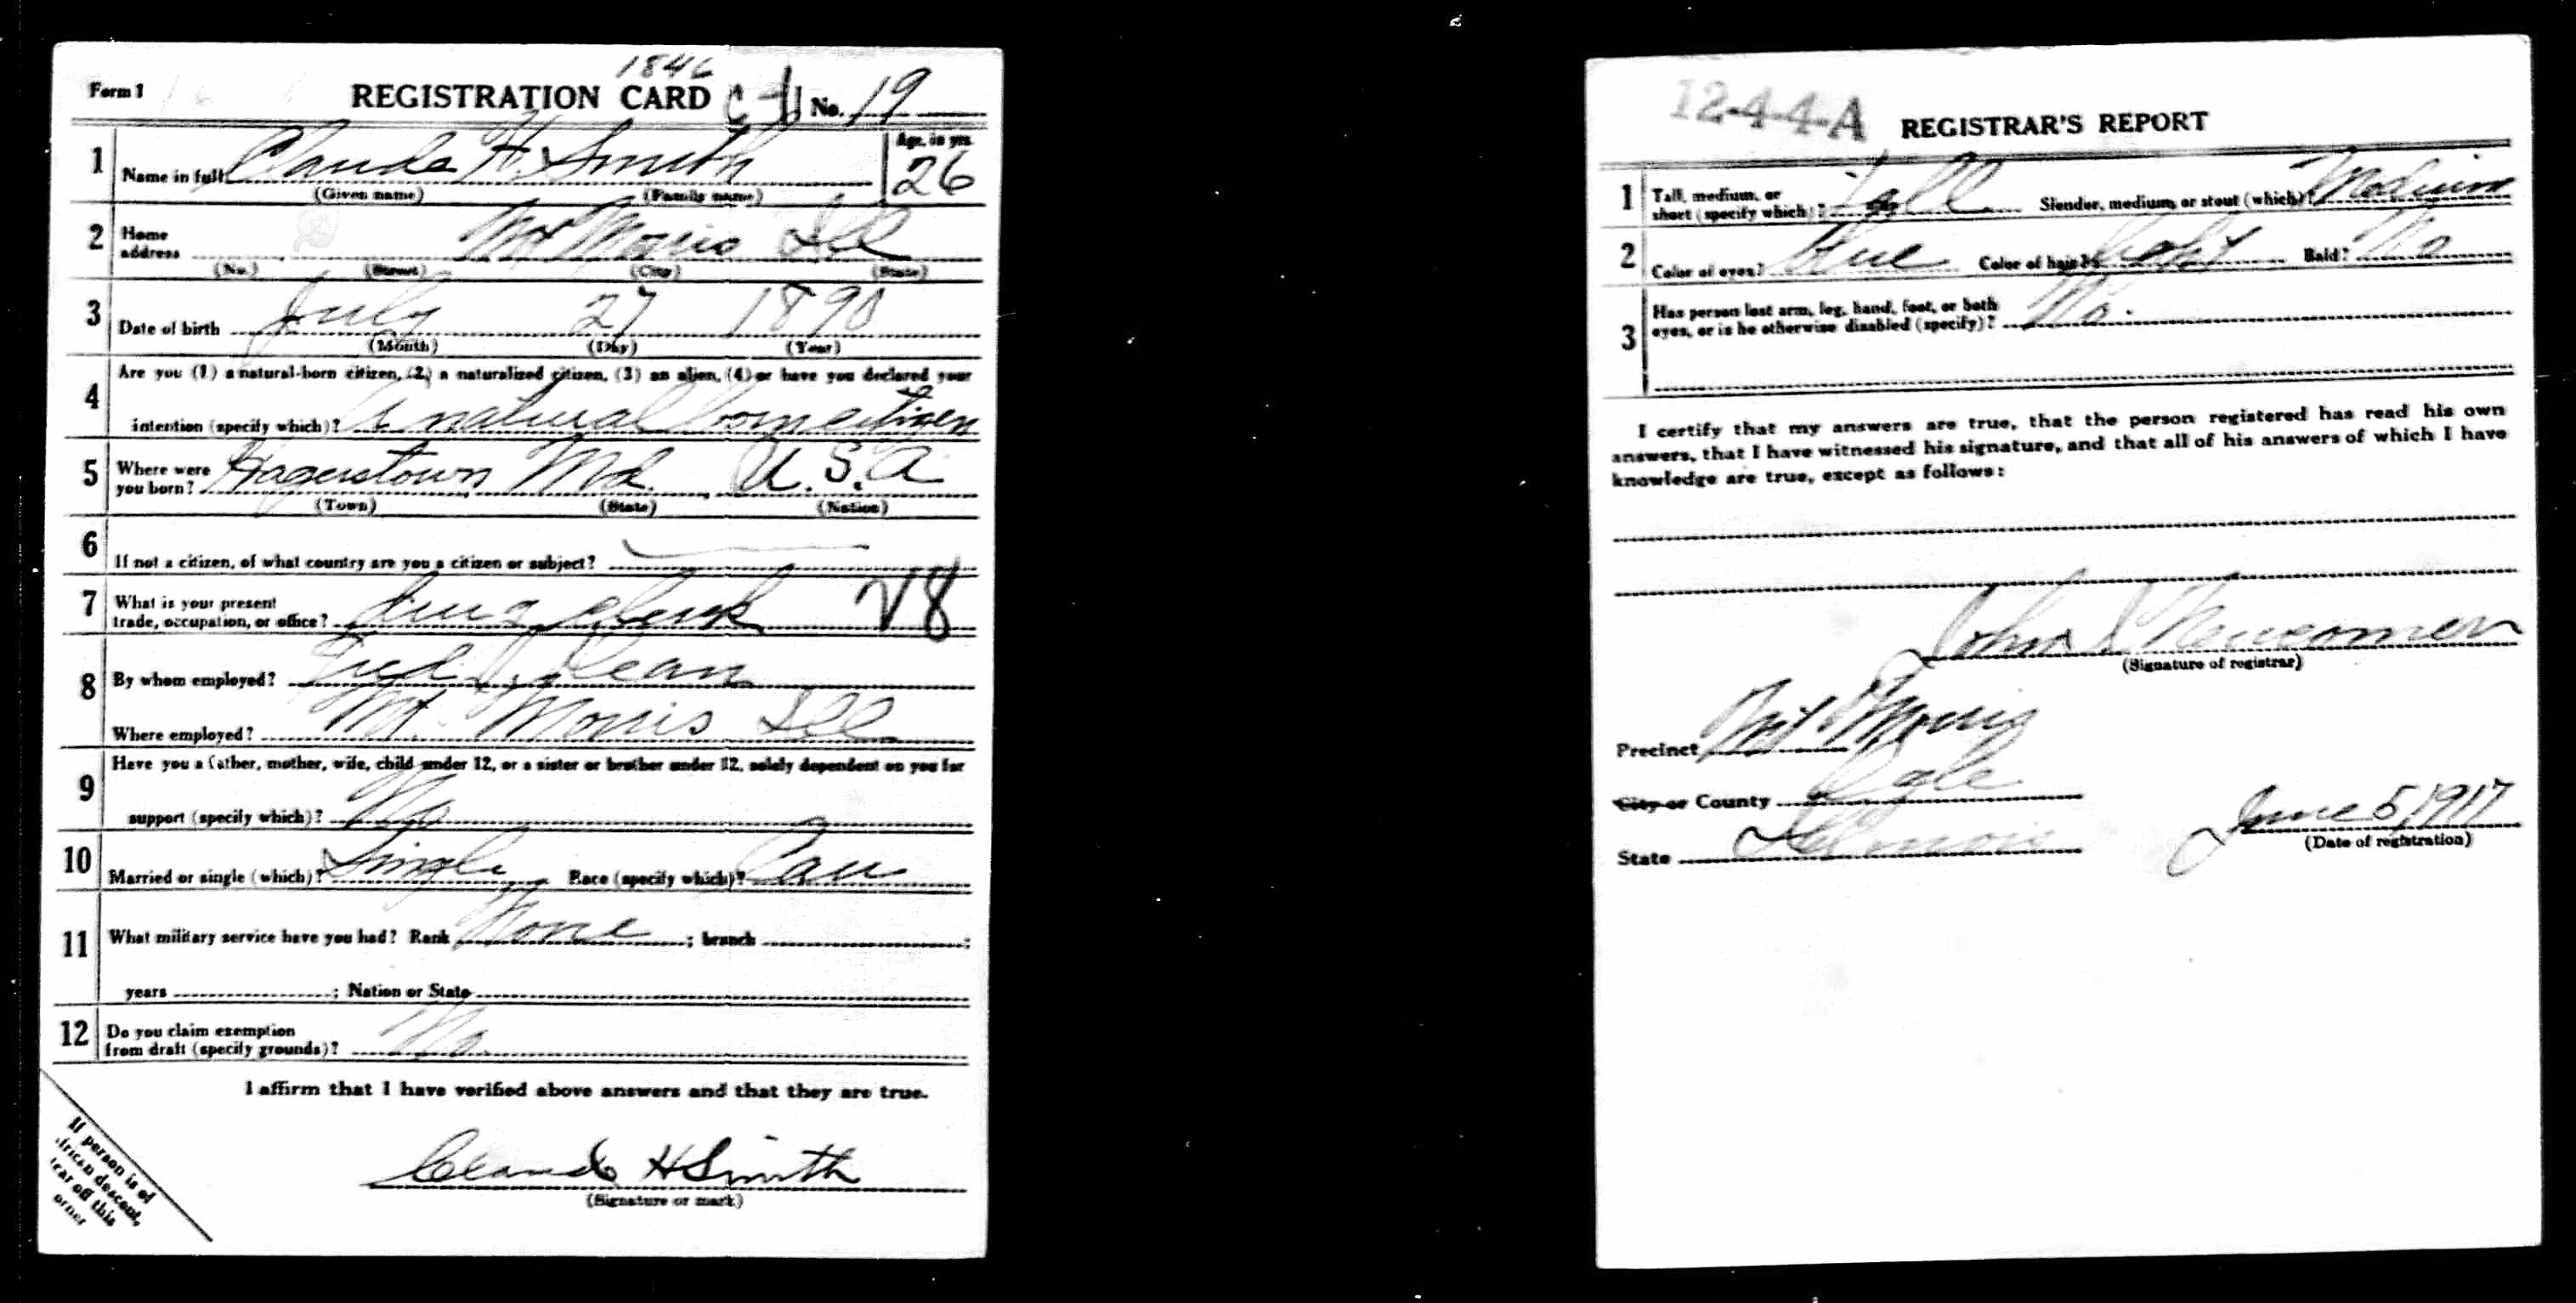 1846
Form 1 REGISTRATION CARD No. 19
1 Name in full Claude H. Smith Age, in yrs. 26
(Given name) (Family name)
2 Home address Mt Morris Ill
(No.) (Street) (City) (State)
3 Date of birth July 27 1890
(Month) (Day) (Year)
4 Are you (1) a natural-born citizen, (2) a naturalized citizen, (3) an alien, (4) or have you declared your
intention (specify which)? A natural born citizen
5 Where were you born? Hagerstown Md. U.S.A
(Town) (State) (Nation)
6 If not a citizen, of what country are you a citizen or subject?
7 What is your present
trade, occupation, or office? drug clerk 28
8 By whom employed? Fred
Where employed? Mt. Morris Ill
9 Have you a father, mother, wife, child under 12, or a sister or brother under 12, solely dependent on you for
support (specify which)? No
10 Married or single (which)? Single Race (specify which)? Cau
11 What military service have you had? Rank None ; branch ;
years ; Nation or State
12 Do you claim exemption
from draft (specify grounds)? No
I affirm that I have verified above answers and that they are true.
Claude H Smith
(Signature or mark)
If person is of
African descent,
tear off this
corner
12-4-4-A REGISTRAR'S REPORT
1 Tall, medium, or
short (specify which)? Tall Slender, medium, or stout (which)? Medium
2 Color of eyes? Blue Color of hair? Light Bald? No
3 Has person lost arm, leg, hand, foot, or both
eyes, or is he otherwise disabled (specify)? No.
I certify that my answers are true, that the person registered has read his own
answers, that I have witnessed his signature, and that all of his answers of which I have
knowledge are true, except as follows:
John Newcomer
(Signature of registrar)
Precinct Mt Morris
City or County Ogle
State Illinois
June 5, 1917
(Date of registration)